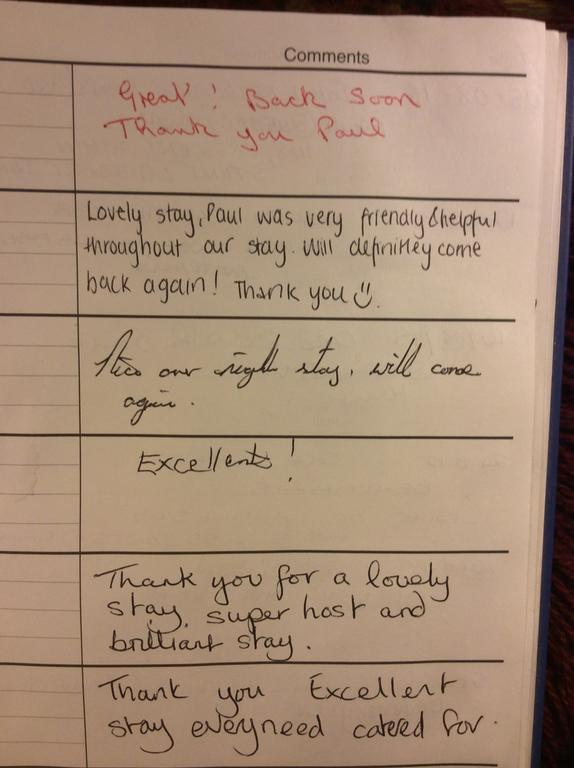 Comments
Great! Back Soon
Thank you Paul
Lovely stay, Paul was very friendly & helpful
throughout our stay. Will definitley come
back again! Thank you
night stay, will come
again.
Excellent!
Thank you for a lovely
stay, super host and
brilliant stay.
Thank you Excellent
stay every need catered for.